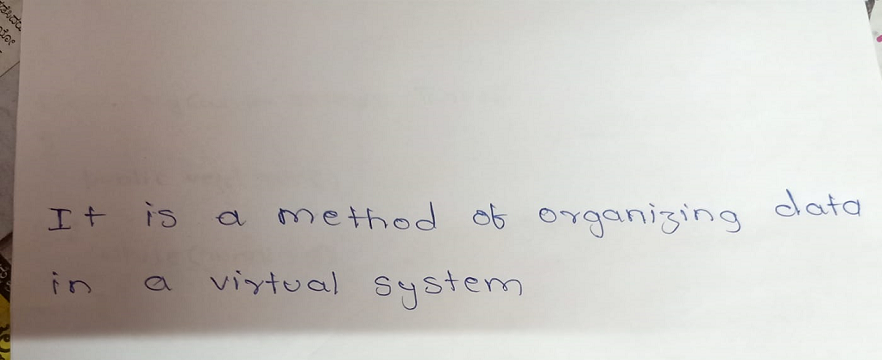 It is a method of organizing data
in a virtual system